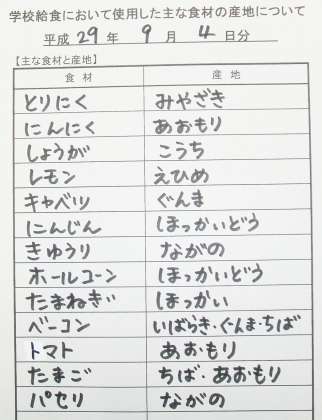 学校給食において使用した主な食材の産地について
平成 29 年 9 月 4 日分
【主な食材と産地】
食材 産地
とりにく みやざき
にんにく あおもり
しょうが こうち
レモン えひめ
キャベツ ぐんま
にんじん ほっかいどう
きゅうり ながの
ホールコーン ほっかいどう
たまねぎ ほっかい
ベーコン いばらき・ぐんま・ちば
トマト あおもり
たまご ちば・あおもり
パセリ ながの